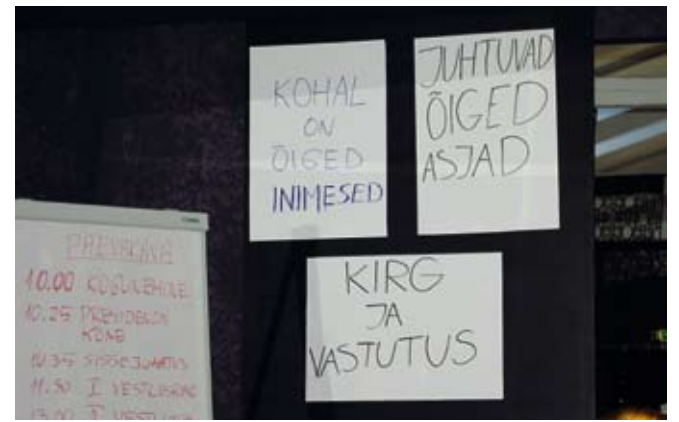 KOHAL
ON
ÕIGED
INIMESED
JUHTUVAD
ÕIGED
ASJAD
KIRG
JA
VASTUTUS
PÄEVAKAVA
10.00 KOGUNEMINE
10.25 PRESIDENDI
KÕNE
10.35 SISSEJUHATUS
11.30 I VESTLUSRING
13.00